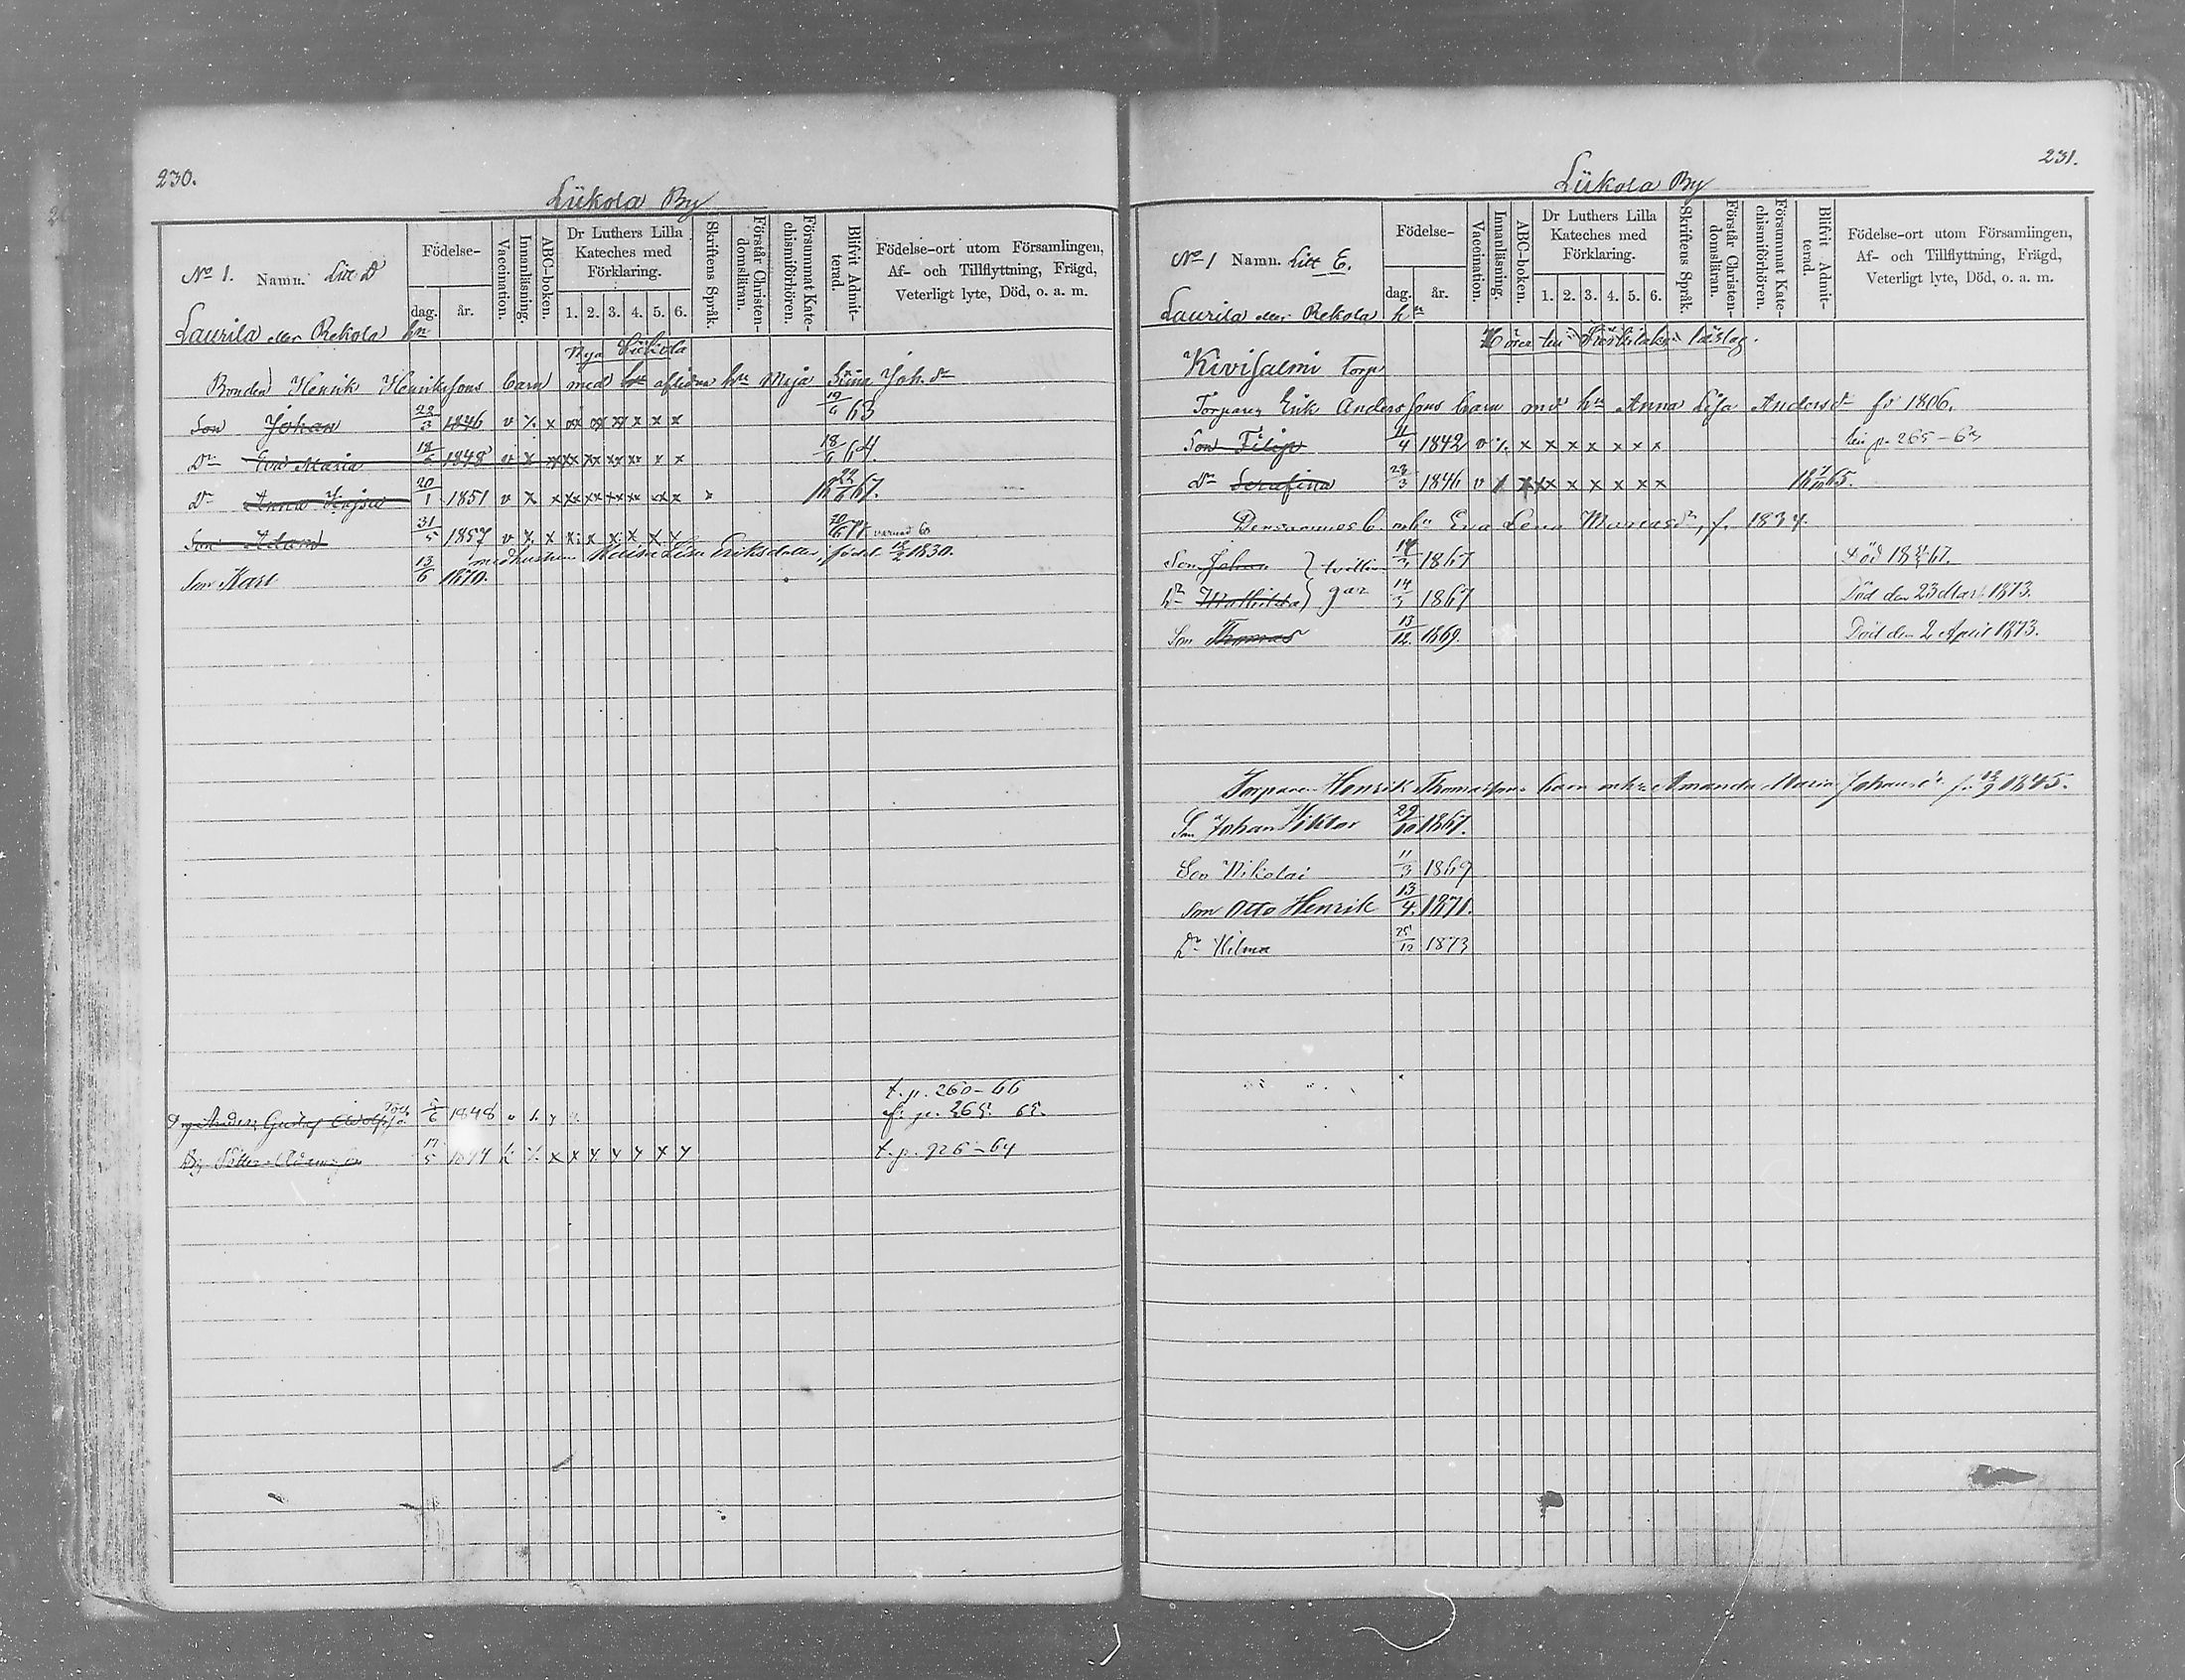 230.
Lükola By
No 1. Namn. Litt D
Födelse-
dag. år.
Vaccination.
Innanläsning.
ABC-boken.
Dr Luthers Lilla Kateches med Förklaring.
1. 2. 3. 4. 5. 6.
Skriftens Språk.
Förstår Christen-domsläran.
Försummat Kate-chismiförhören.
Blifvit Admit-terad.
Födelse-ort utom Församlingen, Af- och Tillflyttning, Frägd, Veterligt lyte, Död, o. a. m.
Laurila eller Rekola hn
Nya
Bonden Henrik Henrikssons barn med aflidna hu Maja Stina Joh. dr
Son Johan 22/3 1846 v x x x x x x x 19/6 63
Dr Eva Maria 18/6 1848 v x x x x x x x 18/6 64
Dr Anna Kajsa 20/1 1851 v x x x x x x x x 18 22/6 67.
Son Adam 31/5 1857 v x x x x x x x x
med hustrun Lisa Eriksdotter, född 1830.
Son Karl 13/6 1870.
t. p. 260-66
Gustaf 1848 v f. p. 265. 65.
17/5 x x y y y x y t. p. 926-64
231.
Lükola By
No 1 Namn. Litt E.
Födelse-
dag. år.
Vaccination.
Innanläsning.
ABC-boken.
Dr Luthers Lilla Kateches med Förklaring.
1. 2. 3. 4. 5. 6.
Skriftens Språk.
Förstår Christen-domsläran.
Försummat Kate-chismiförhören.
Blifvit Admit-terad.
Födelse-ort utom Församlingen, Af- och Tillflyttning, Frägd, Veterligt lyte, Död, o. a. m.
Laurila eller Rekola hn
Hörer till läslag.
Kivisalmi torp
Torparen Erik Anderssons barn med hu Anna Lisa Andersdr fö 1806.
Son Filip 11/4 1842 v x x x x x x x p. 265-63
Dr Serafina 23/3 1846 v x x x x x x x 65.
Densammes b. m hu Eva Lena f. 1834.
Son Johan } tvillin 14/3 1867 Död 67.
Dr Mathilda } gar 14/3 1867 Död den 23 Mars 1873.
Son Thomas 13/12 1869. Död den 2 April 1873.
Torparen Henrik Thomassons barn m hu Amanda Maria Johansdr f. 1845.
Son Johan Viktor 29/10 1867.
Son Nikolai 11/3 1869
Son Otto Henrik 13/4. 1871.
Dr Hilma 25/12 1873